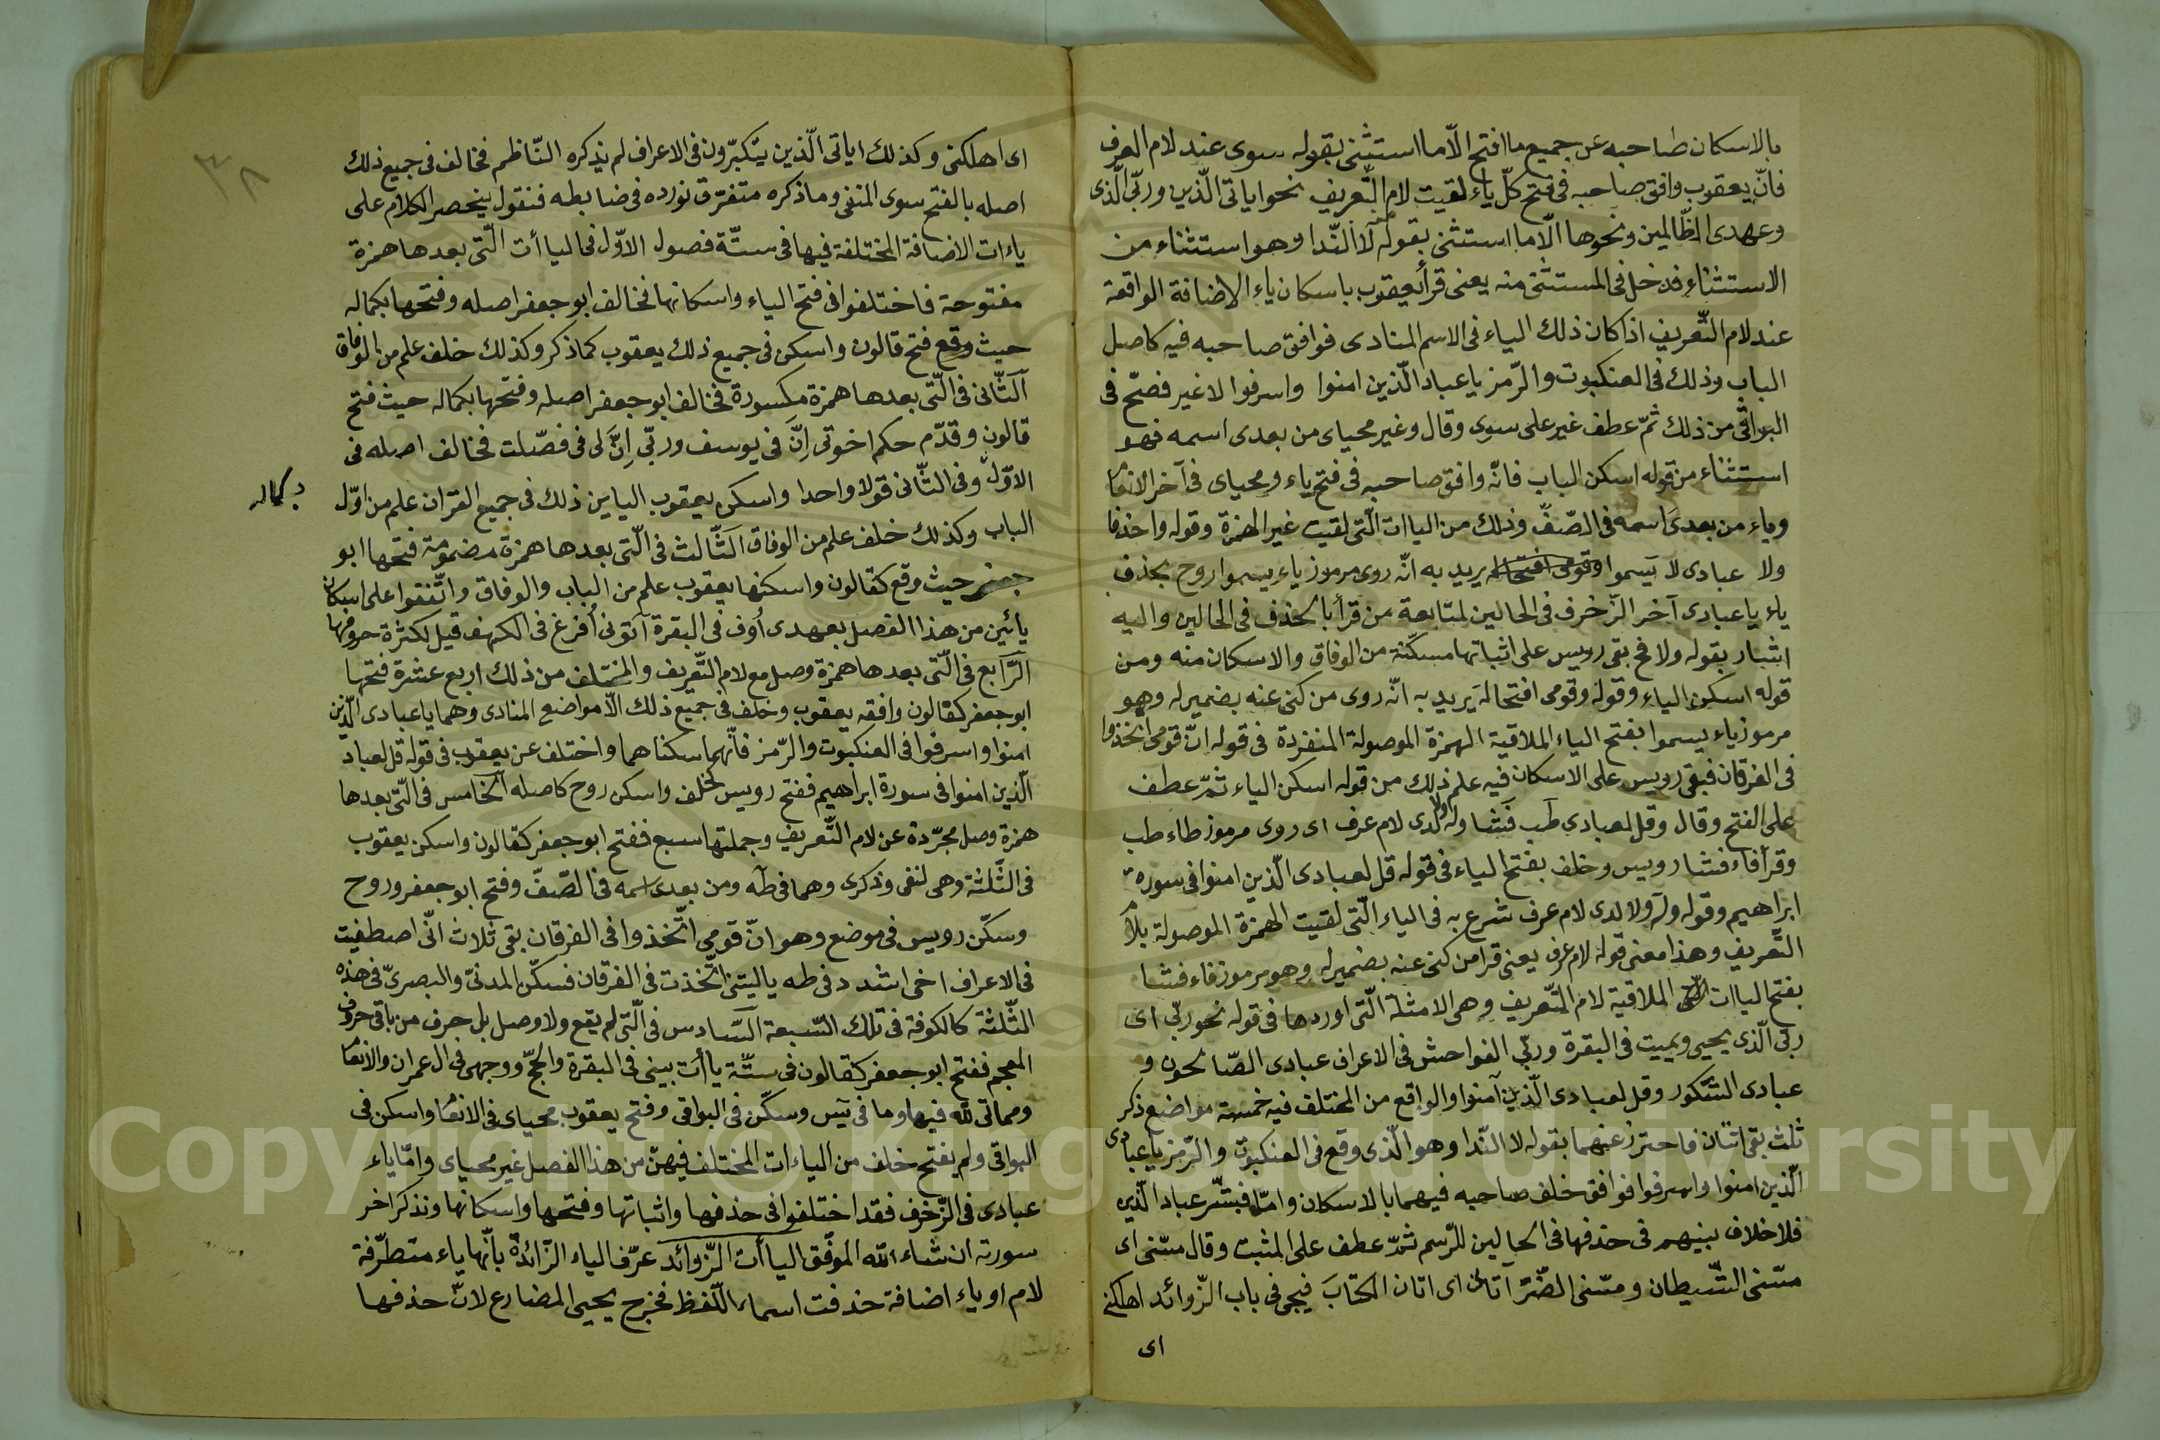 بالاسكان صاحبه عن جميع ما افتح الّا ما استثنى بقوله سوى عند لام العرف
فانّ يعقوب وافق صاحبه فى فتح كلّ ياء لقيت لام التّعريف نحو اياتى الّذين وربّى الّذى
وعهدى الظّالمين ونحوها الّا ما استثنى بقوله لا النّدا وهو استثناء من
الاستثناء فدخل فى المستثنى منه يعنى قرأ يعقوب باسكان ياء الاضافة الواقعة
عند لام التّعريف اذا كان ذلك الياء فى الاسم المنادى فوافق صاحبه فيه كاصل
الباب وذلك فى العنكبوت والزّمر يا عباد الّذين امنوا واسرفوا لا غير فصحّ فى
البواقى من ذلك ثمّ عطف غير على سوى وقال وغير محياى من بعدى اسمه فهو
استثناء من قوله اسكن الباب فانّه وافق صاحبه فى فتح ياء ومحياى فى آخر الانعام
وياء من بعدى اسمه فى الصّفّ وذلك من الياات الّتى لقيت غير الهمزة وقوله واحذفا
ولا عبادى لا يسموا يريد به انّه روى مرموز ياء يسموا روح بحذف
ياء يا عبادى آخر الزّخرف فى الحالين لمتابعة من قرأ بالحذف فى الحالين واليه
اشار بقوله ولا فح بقى رويس على اثباتها مسكّنة من الوفاق والاسكان منه ومن
قوله اسكن الياء وقوله وقومى افتحا له يريد به انّه روى من كنى عنه بضمير له وهو
مرموز ياء يسموا بفتح الياء الملاقية الهمزة الموصولة المنفردة فى قوله انّ قومى اتّخذوا
فى الفرقان فبقى رويس على الاسكان فيه علم ذلك من قوله اسكن الياء ثمّ عطف
على الفتح وقال وقل لعبادى طب فشا وله ولا لدى لام عرف اى روى مرموز طاء طب
وقرأ فاء فشا رويس وخلف بفتح الياء فى قوله قل لعبادى الّذين امنوا فى سورة
ابراهيم وقوله وله ولا لدى لام عرف شرع به فى الياء الّتى لقيت الهمزة الموصولة بلام
التّعريف وهذا معنى قوله لام عرف يعنى قرا من كنى عنه بضمير له وهو مرموز فاء فشا
بفتح الياات الملاقية لام التّعريف وهى الامثلة الّتى اوردها فى قوله نحو ربّى اى
ربّى الّذى يحيى ويميت فى البقرة وربّى الفواحش فى الاعراف عبادى الصّالحون و
عبادى الشّكور وقل لعبادى الّذين آمنوا والواقع من المختلف فيه خمسة مواضع ذكر
ثلث بقى اثنان فاحترز عنهما بقوله لا النّدا وهو الّذى وقع فى العنكبوت والزّمر يا عبادى
الّذين امنوا واسرفوا فوافق خلف صاحبه فيهما بالاسكان وامّا فبشّر عباد الّذين
فلا خلاف بينهم فى حذفها فى الحالين للرّسم ثمّ عطف على المثبت وقال مسّنى اى
مسّنى الشّيطان ومسّنى الضّرّ آتان اى اتان الكتاب فيجى فى باب الزّوائد اهلكنى
اى
٣٨
اى اهلكنى وكذلك اياتى الّذين يتكبّرون فى الاعراف لم يذكره النّاظم فخالف فى جميع ذلك
اصله بالفتح سوى المنفى وما ذكره متفرّق نورده فى ضابطه فنقول ينحصر الكلام على
ياءات الاضافة المختلفة فيها فى ستّة فصول الاوّل فى الياات الّتى بعدها همزة
مفتوحة فاختلفوا فى فتح الياء واسكانها فخالف ابو جعفر اصله وفتحها بكماله
حيث وقع فتح قالون واسكن فى جميع ذلك يعقوب كما ذكر وكذلك خلف علم من الوفاق
الثّانى فى الّتى بعدها همزة مكسورة فخالف ابو جعفر اصله وفتحها بكماله حيث فتح
قالون وقدّم حكم اخوتى انّ فى يوسف وربّى انّ لى فى فصّلت فخالف اصله فى
الاوّل وفى الثّانى قولا واحدا واسكن يعقوب الياين ذلك فى جميع القران علم من اوّل
بكماله
الباب وكذلك خلف علم من الوفاق الثّالث فى الّتى بعدها همزة مضمومة فتحها ابو
جعفر حيث وقع كقالون واسكنها يعقوب علم من الباب والوفاق واتّفقوا على اسكان
يائين من هذا الفصل بعهدى أوف فى البقرة آتونى أفرغ فى الكهف قيل لكثرة حروفها
الرّابع فى الّتى بعدها همزة وصل مع لام التّعريف والمختلف من ذلك اربع عشرة فتحها
ابو جعفر كقالون وافقه يعقوب وخلف فى جميع ذلك الّا مواضع المنادى وهما يا عبادى الّذين
امنوا واسرفوا فى العنكبوت والزّمر فانّهما سكناهما واختلف عن يعقوب فى قوله قل لعباد
الّذين امنوا فى سورة ابراهيم ففتح رويس كخلف واسكن روح كاصله الخامس فى الّتى بعدها
همزة وصل مجرّدة عن لام التّعريف وجملتها سبع ففتح ابو جعفر كقالون واسكن يعقوب
فى الثّلثة وهى لنفى وذكرى وهما فى طه ومن بعدى اسمه فى الصّفّ وفتح ابو جعفر وروح
وسكّن رويس فى موضع وهو انّ قومى اتّخذوا فى الفرقان بقى ثلاث انّى اصطفيت
فى الاعراف اخى اشدد فى طه يا ليتنى اتّخذت فى الفرقان فسكّن المدنىّ والبصرىّ فى هذه
الثّلثة كالكوفة فى تلك السّبعة السّادس فى الّتى لم يقع ولا وصل بل حرف من باقى حروف
المعجم ففتح ابو جعفر كقالون فى ستّة ياأت بيتى فى البقرة والحجّ ووجهى فى ال عمران والانعام
ومماتى لله فيها وما فى يس وسكّن فى البواقى وفتح يعقوب محياى فى الانعام واسكن فى
البواقى ولم يفتح خلف من الياءات المختلف فيهنّ من هذا الفصل غير محياى وامّا ياء
عبادى فى الزّخرف فقد اختلفوا فى حذفها واثباتها وفتحها واسكانها ونذكر اخر
سورته ان شاء الله الموفّق الياأت الزّوائد عرّف الياء الزّائدة بانّها ياء متطرّفة
لام او ياء اضافة حذفت اسماء اللّفظ فخرج يحيى المضارع لانّ حذفها
Copyright © King Saud University